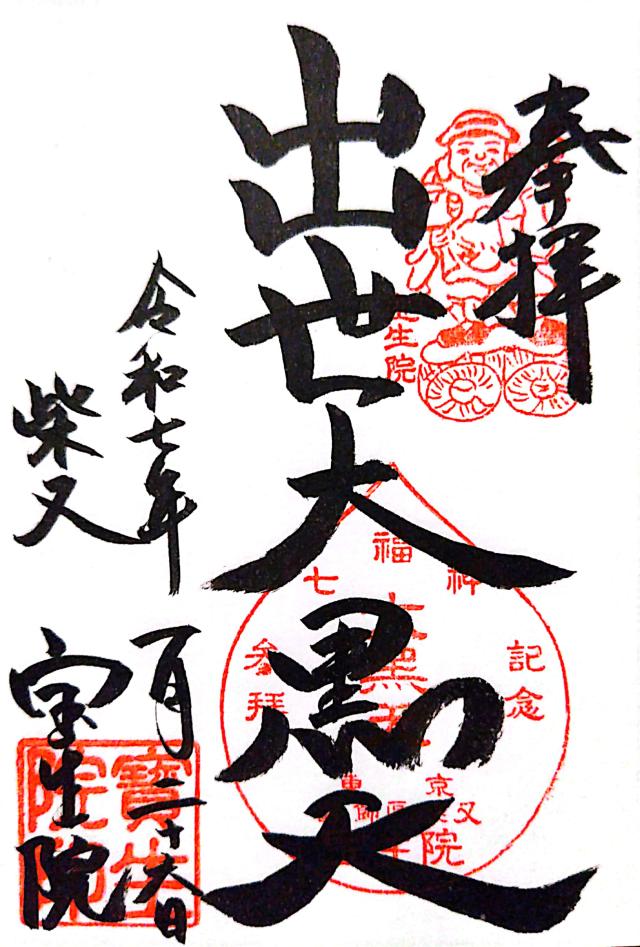 奉拝
出世大黒天
令和七年
一月二十六日
柴又
宝生院
生院
福
七
神
参拝
記念
大黒天
京
又
院
寶生
院